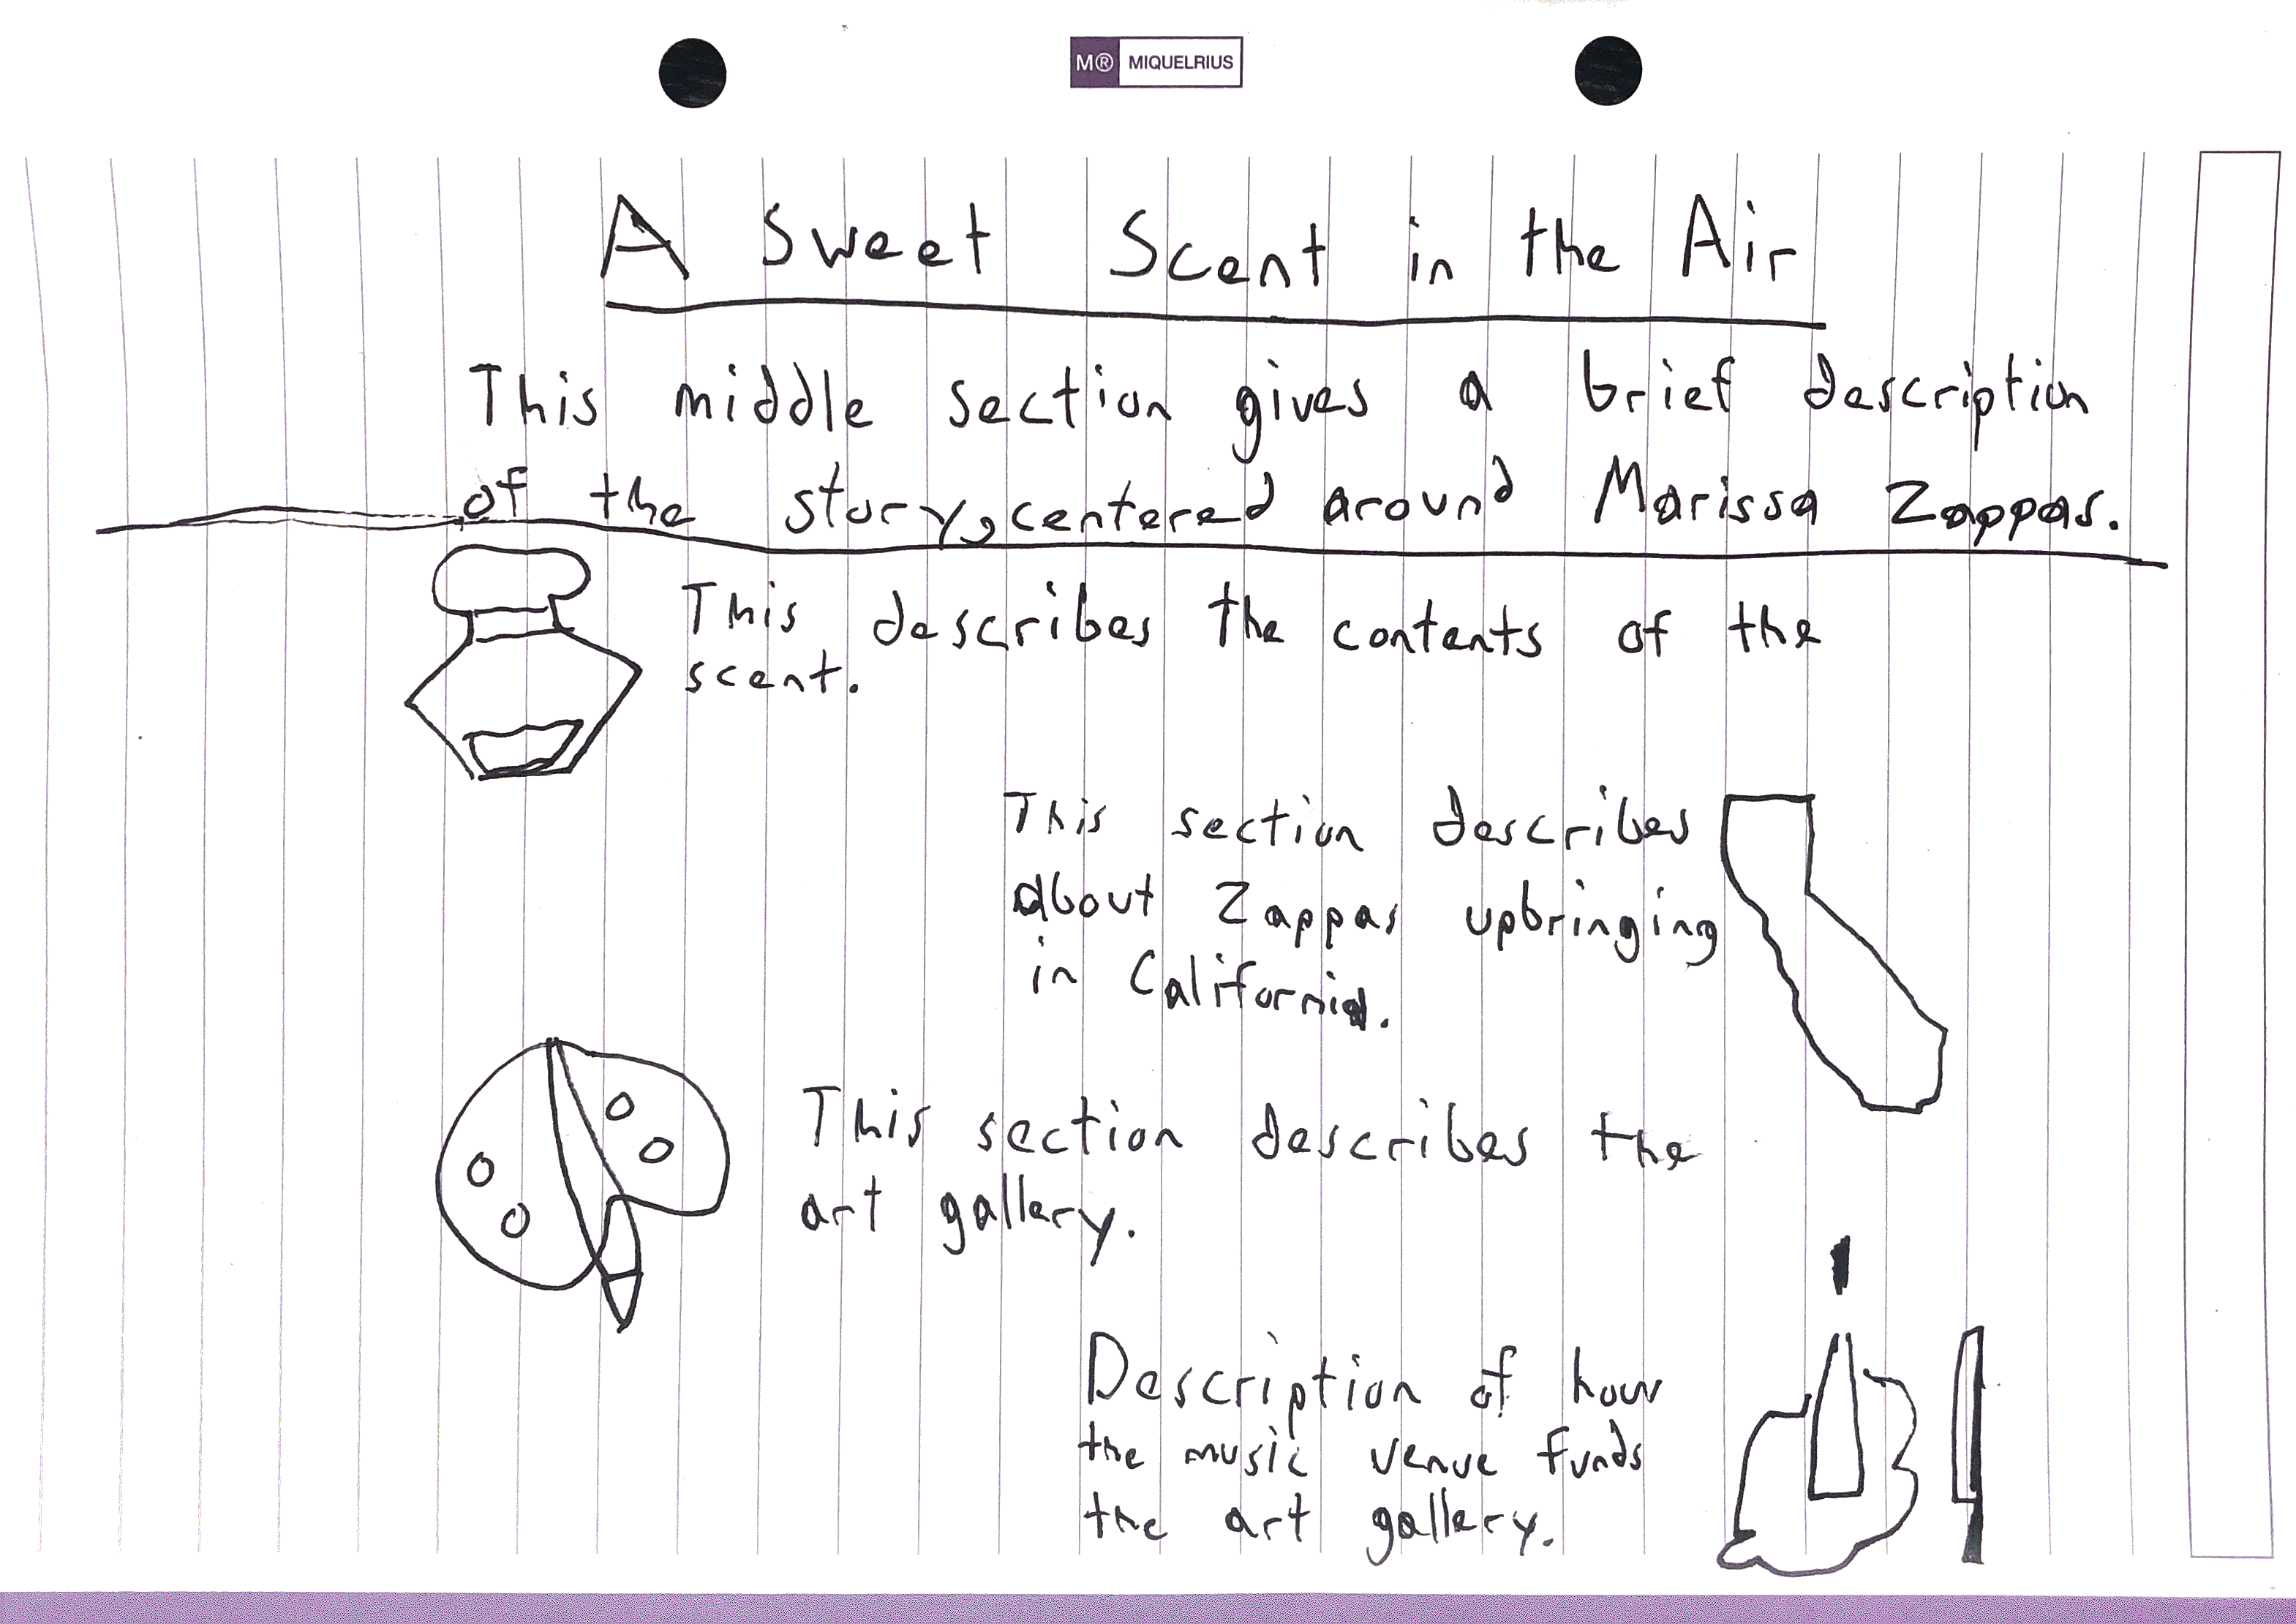 M® MIQUELRIUS
A Sweet Scent in the Air
This middle section gives a brief description
of the story, centered around Marissa Zappas.
This describes the contents of the
scent.
This section describes
about Zappas upbringing
in California.
This section describes the
art gallery.
Description of how
the music venue funds
the art gallery.